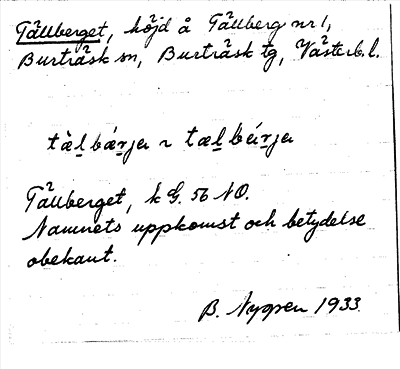 Tållberget, höjd å Tållberg nr 1,
Burträsk sn, Burträsk tg, Västerb. l.
Tållberget, k G. 56 NO.
Namnets uppkomst och betydelse
obekant.
B. Nygren 1933.